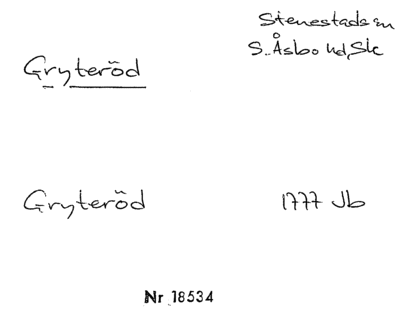 Stenestads sn
S. Åsbo hd, Sk
Gryteröd
Gryteröd 1777 Jb
Nr 18534